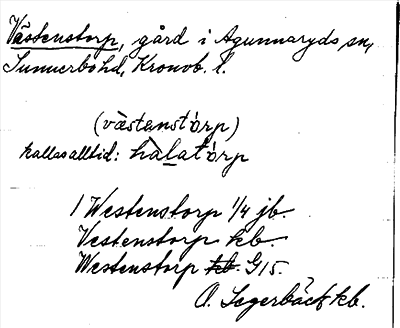 Västenstorp, gård i Agunnaryds sn,
Sunnerbohd, Kronob. l.
(västanstórp)
kallas alltid: hàlatórp
1 Westenstorp 1/4 jb.
Vestenstorp kb.
Westenstorp kb. G15.
O. Segerbäck kb.